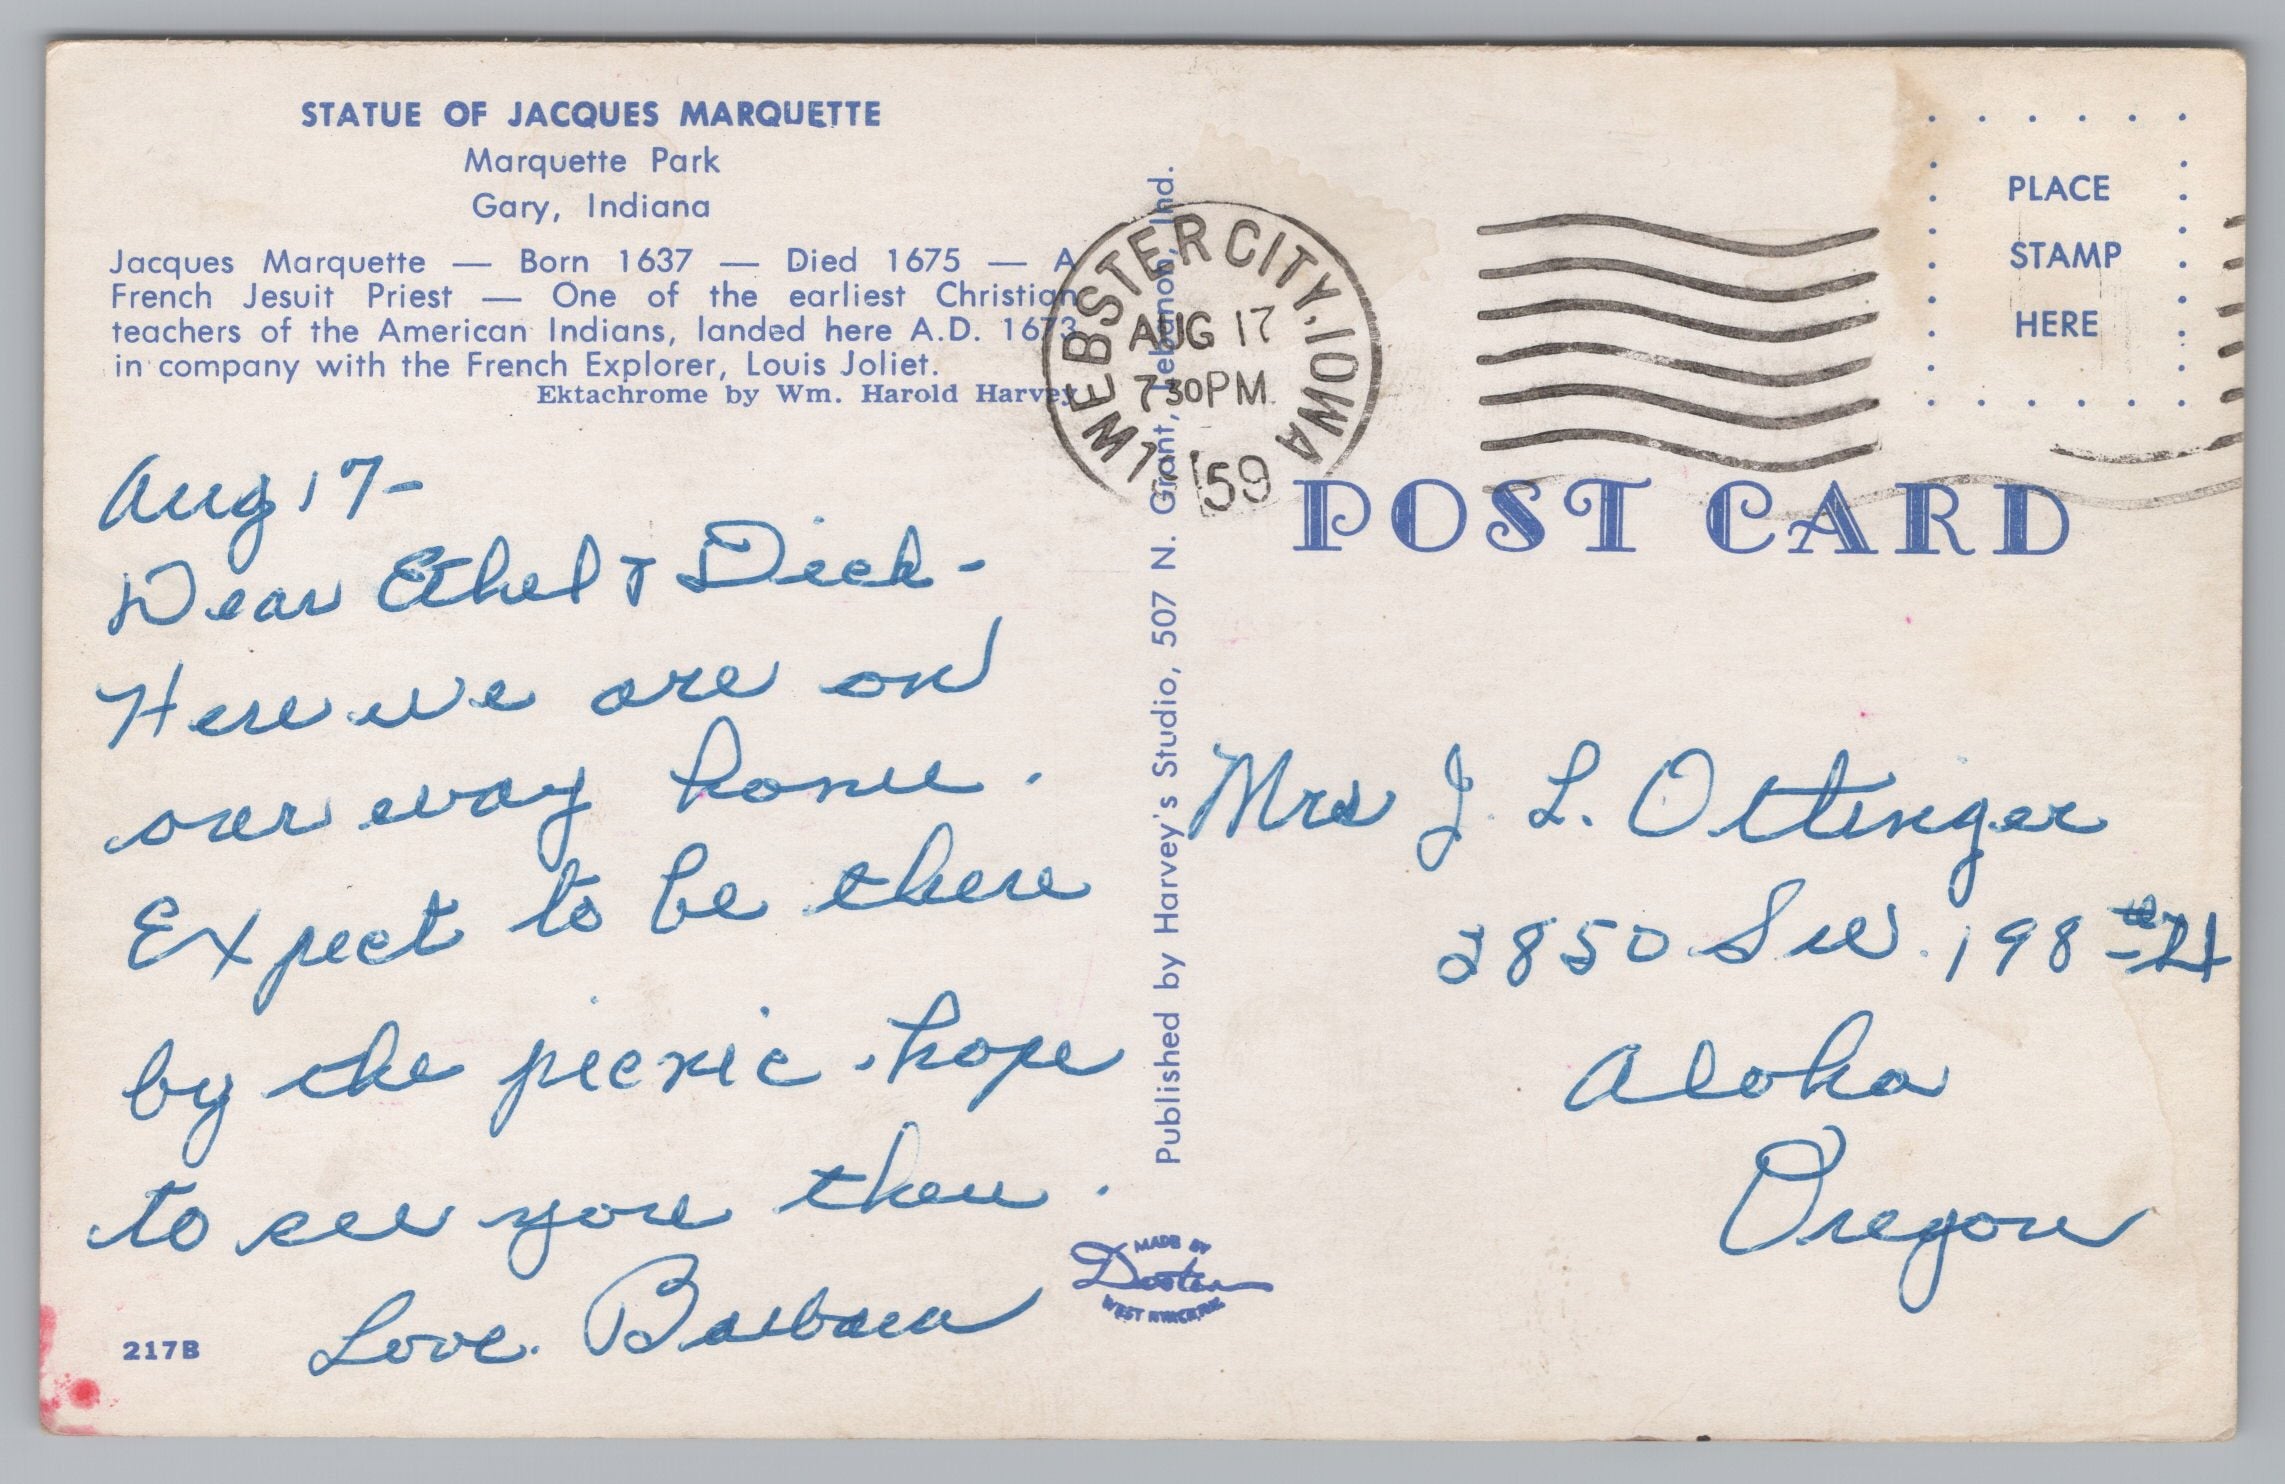 STATUE OF JACQUES MARQUETTE
Marquette Park
Gary, Indiana
Jacques Marquette — Born 1637 — Died 1675 — A
French Jesuit Priest — One of the earliest Christian
teachers of the American Indians, landed here A.D. 1673
in company with the French Explorer, Louis Joliet.
Ektachrome by Wm. Harold Harvey
Aug 17-
Dear Ethel & Dick -
Here we are on
our way home.
Expect to be there
by the picnic. hope
to see you then.
Love. Barbara
217B
Published by Harvey's Studio, 507 N. Grant, Lebanon, Ind.
MADE BY
Dexter
WEST NYACK, N.Y.
WEBSTER CITY, IOWA
AUG 17
7 30 PM
1959
PLACE
STAMP
HERE
POST CARD
Mrs J. L. Ottinger
3850 SW. 198th
Aloha
Oregon